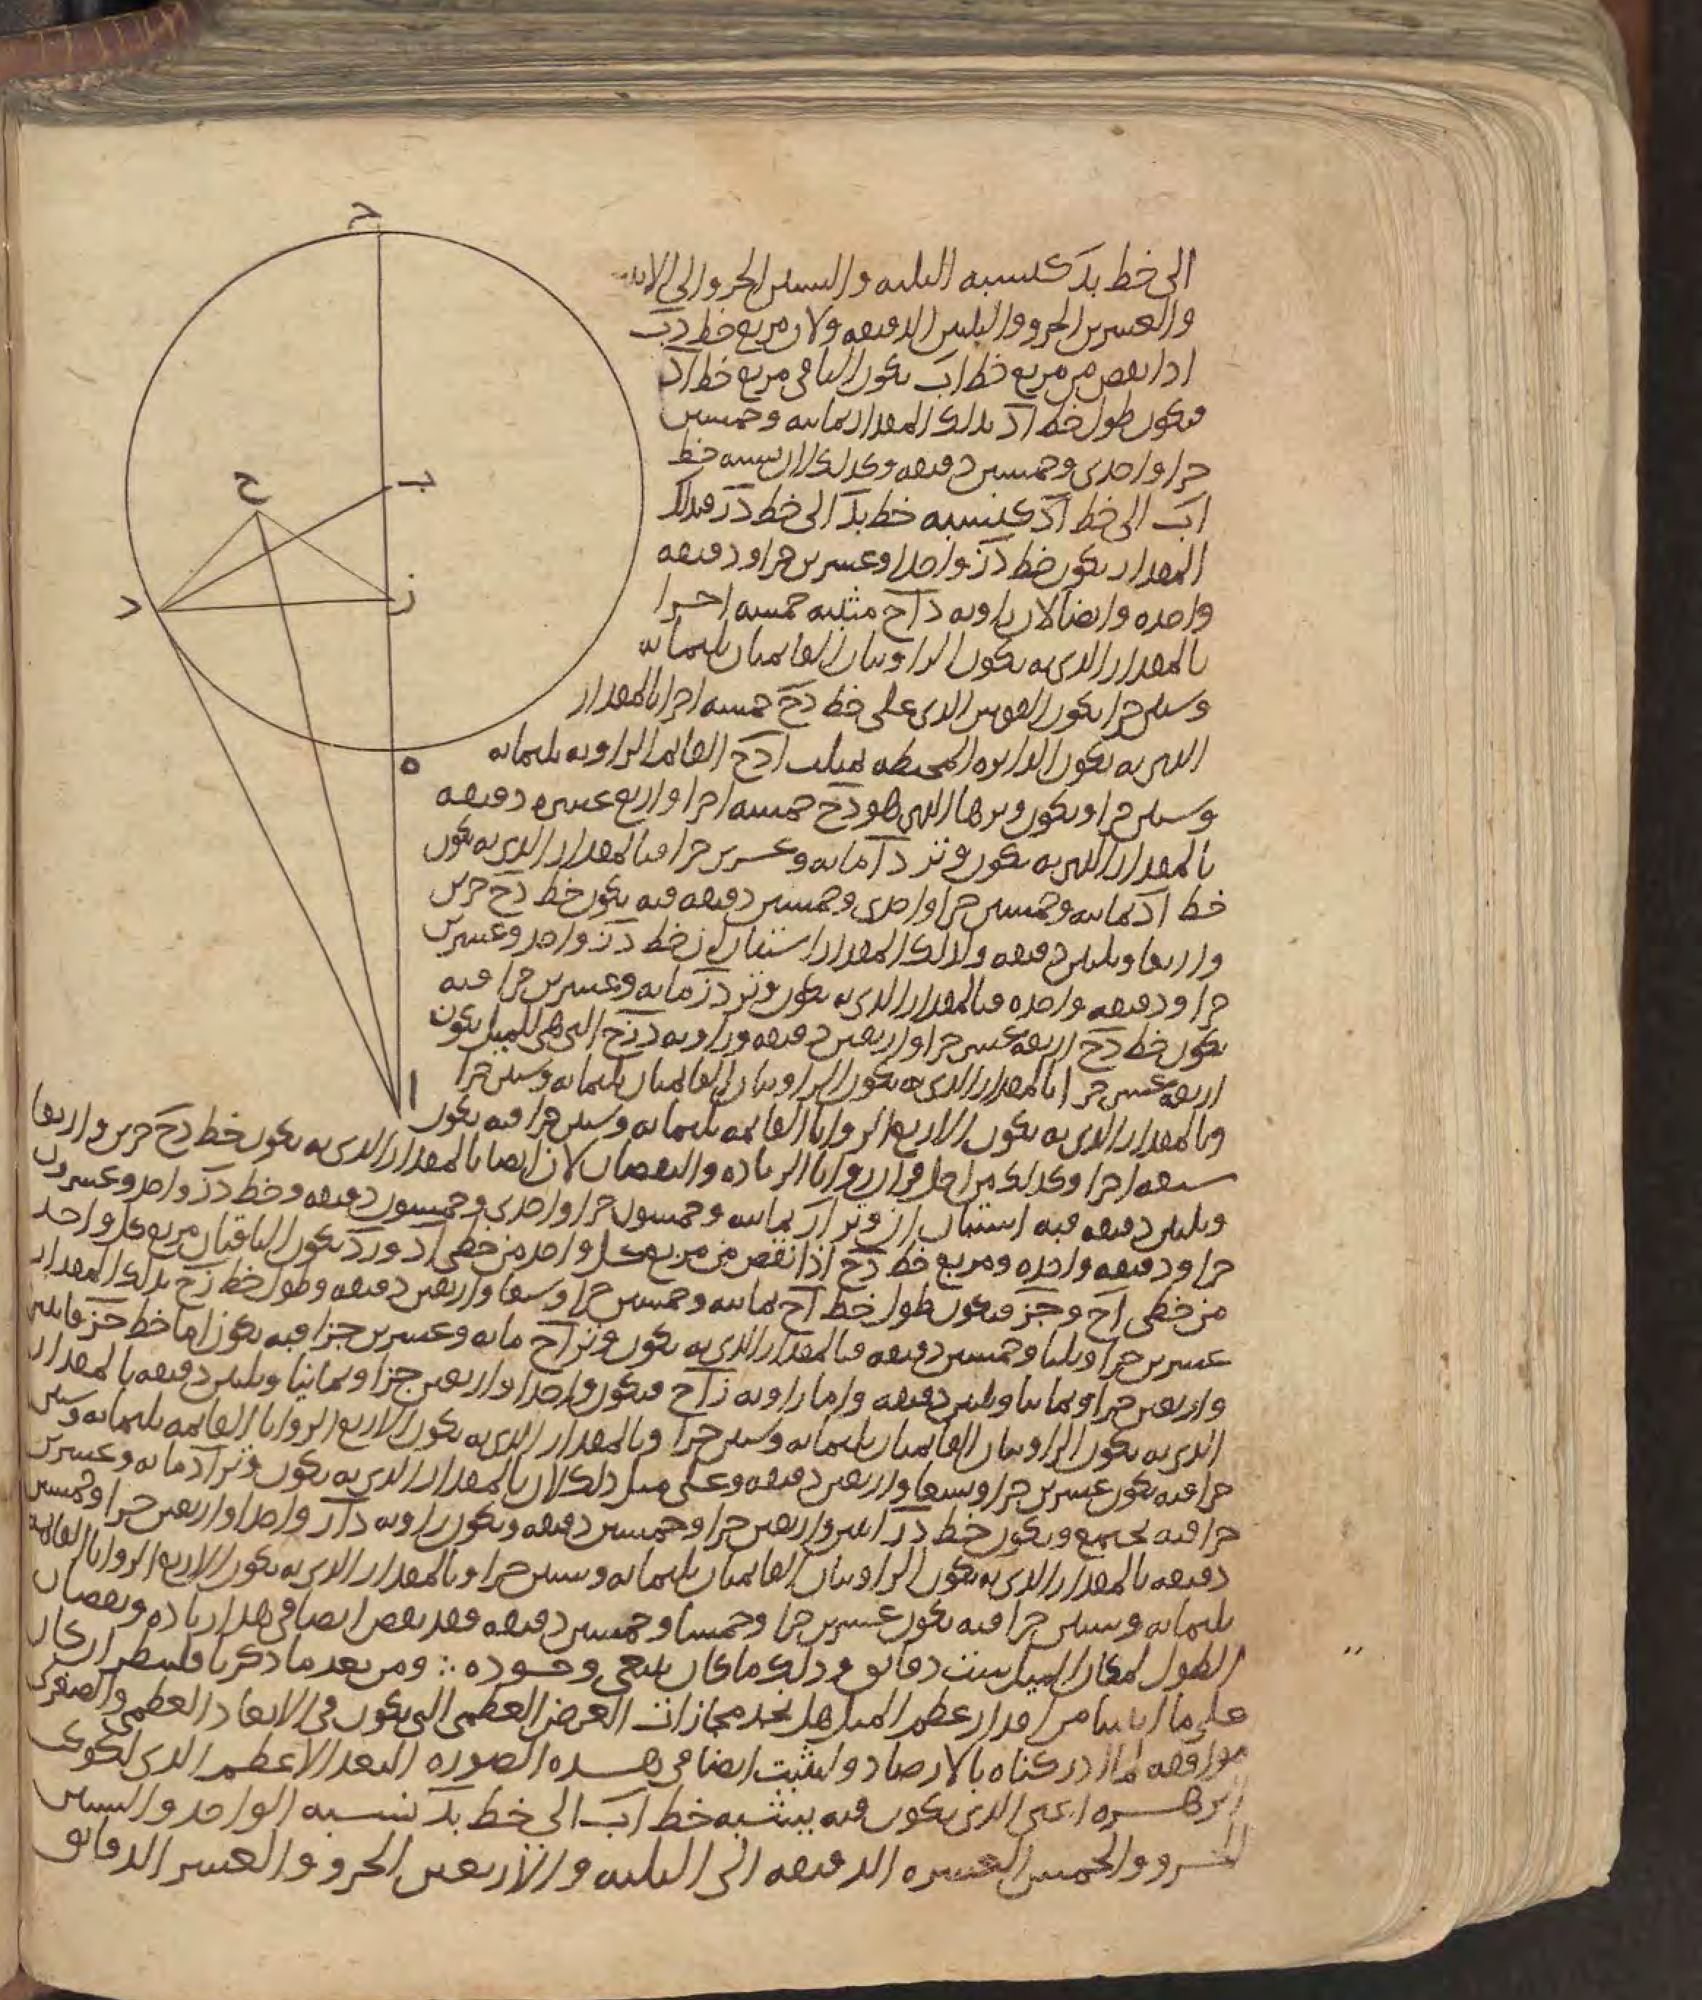 ج
ح
ب
د
ز
ه
ا
الى خط بد كنسبة الثلثه والستين الجزو الى الاثنين
والعشرين الجزو والثلثين الدقيقه ولان مربع خط دب
اذا نقص من مربع خط اب يكون الباقى مربع خط اد
فيكون طول خط اد بذلك المقدار ثمانيه وخمسين
جزا واحدى وخمسين دقيقه وكذلك لان نسبه خط
اب الى خط اد كنسبه خط بد الى خط دز فبذلك
المقدار يكون خط دز واحدا وعشرين جزا ودقيقه
واحده وايضا لان زاويه داح مثبته خمسه اجزا
بالمقدار الذى به يكون الزاويتان القائمتان ثلثمائه
وستين جزا يكون القوس الذى على خط دح خمسه اجزا بالمقدار
الذى به يكون الدايره المحيطه بمثلث ادح القائم الزاويه ثلثمائه
وستين جزا ويكون وترها الذى هو دح خمسه اجزا واربع عشره دقيقه
بالمقدار الذى به يكون وتر دا مائه وعشرين جزا فبالمقدار الذى به يكون
خط اد ثمانيه وخمسين جزا واحدى وخمسين دقيقه فبه يكون خط دح جزين
واربعا وثلثين دقيقه ولذلك المقدار استبان ان خط دز واحد وعشرين
جزا ودقيقه واحده فبالمقدار الذى به يكون وتر دز مائه وعشرين جزا فبه
يكون خط دح اربعه عشر جزا واربعين دقيقه وزاويه دزح التى هى للميل يكون
اربعه عشر جزا بالمقدار الذى به يكون الزاويتان القائمتان ثلثمائه وستين جزا
وبالمقدار الذى به يكون الاربع الزوايا القائمه ثلثمائه وستين جزا فبه يكون
سبعه اجزا وكذلك من اجل فرار زوايا الزياده والنقصان لان ايضا بالمقدار الذى به يكون خط دح جزين واربعا
وثلثين دقيقه فبه استبان ان وتر اد ثمانيه وخمسون جزا واحدى وخمسون دقيقه وخط دز واحد وعشرون
جزا ودقيقه واحده ومربع خط دح اذا نقص من مربع كل واحد من خطى اد ودز يكون الباقيان مربع كل واحد
من خطى اح وحز فيكون طول خط اح ثمانيه وخمسين جزا وسبعا واربعين دقيقه وطول خط زح بذلك المقدار
عشرين جزا وثلثا وخمسين دقيقه فبالمقدار الذى به يكون وتر اح مائه وعشرين جزا فبه يكون اما خط حز فاثنين
واربعين جزا وثمانيا وثلثين دقيقه واما زاويه زاح فيكون واحدا واربعين جزا وثمانيا وثلثين دقيقه بالمقدار
الذى به يكون الزاويتان القائمتان ثلثمائه وستين جزا وبالمقدار الذى به يكون الاربع الزوايا القائمه ثلثمائه وستين
جزا فبه يكون عشرين جزا وتسعا واربعين دقيقه وعلى مثل ذلك لان بالمقدار الذى به يكون وتر اد مائه وعشرين
جزا فبه يجتمع ويكون خط دز اثنين واربعين جزا وخمسين دقيقه ويكون زاويه داز واحدا واربعين جزا وخمسين
دقيقه بالمقدار الذى به يكون الزاويتان القائمتان ثلثمائه وستين جزا وبالمقدار الذى به يكون الاربع الزوايا القائمه
ثلثمائه وستين جزا فبه يكون عشرين جزا وخمسا وخمسين دقيقه فقد نقص ايضا فى هذا زياده ونقصان
الطول لمكان الميل ست دقائق وذلك ما كان ينبغى وجوده ∴ ومن بعد ما ذكرنا فلينظر ان كان
على ما اثبتنا من اقدار عظم الميل هل نجد مجازات العرض العظمى التى يكون فى الابعاد العظمى والصغرى
موافقه لما ادركناه بالارصاد وليثبت ايضا فى هذه الصوره البعد الاعظم الذى لكوكب
الزهره اعنى الذى يكون فيه بنسبه خط اب الى خط بد نسبه الواحد والستين
الجزو والخمس العشره الدقيقه الى الثلثه والاربعين الجزو والعشر الدقائق